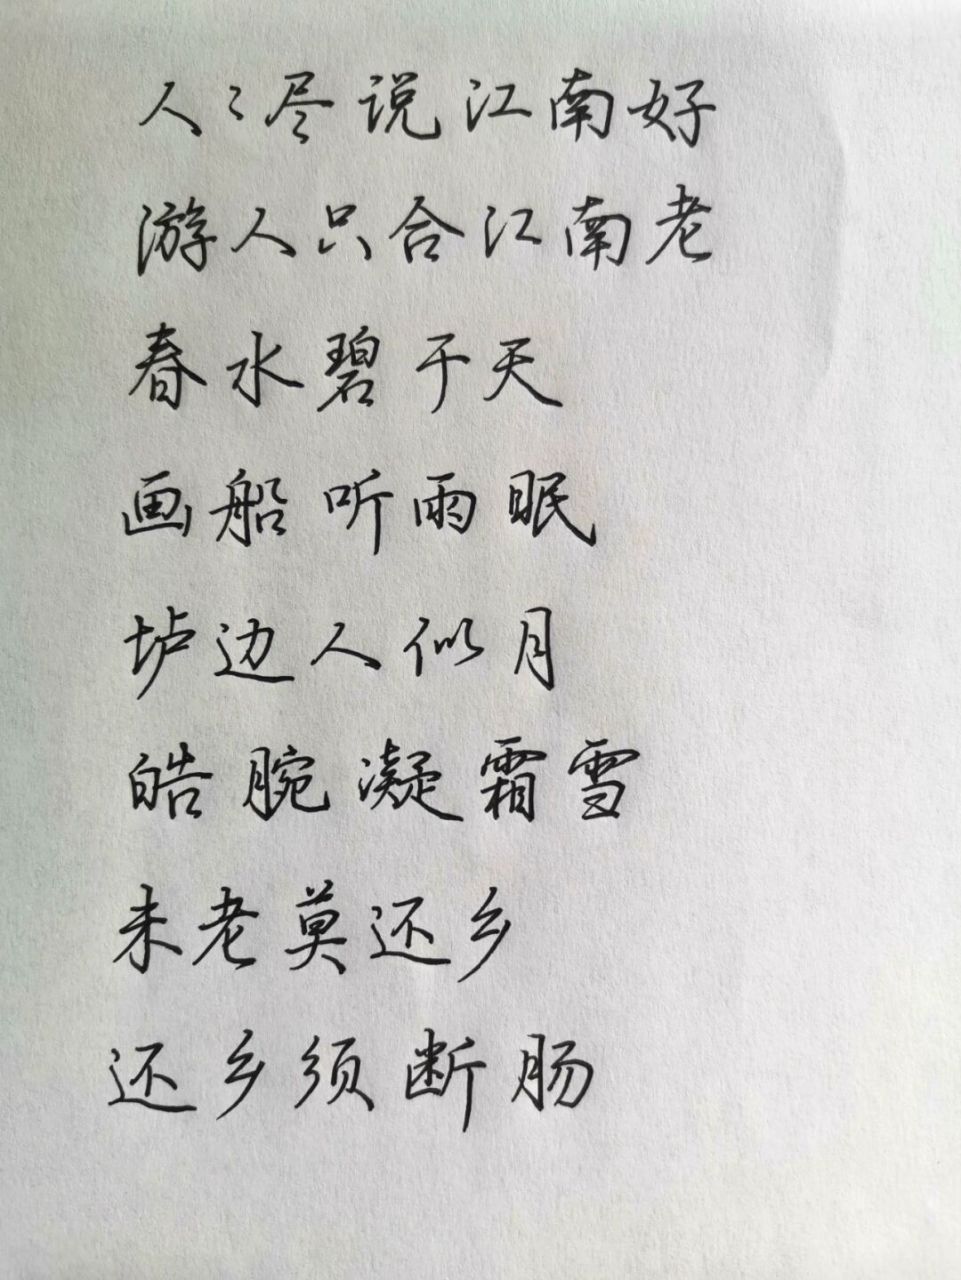 人々尽说江南好
游人只合江南老
春水碧于天
画船听雨眠
垆边人似月
皓腕凝霜雪
未老莫还乡
还乡须断肠